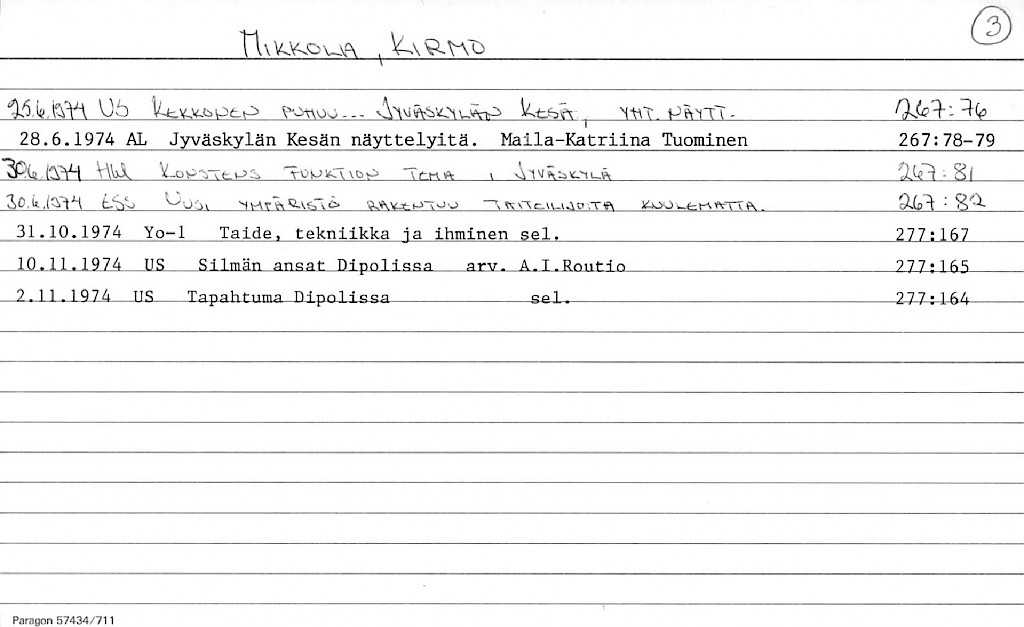 3
MIKKOLA, KIRMO
25.6.1974 US KEKKONEN PUHUU... JYVÄSKYLÄN KESÄ, YHT. NÄYTT. 267:76
28.6.1974 AL Jyväskylän Kesän näyttelyitä. Maila-Katriina Tuominen 267:78-79
30.6.1974 Hbl KONSTENS FUNKTION TEMA I JYVÄSKYLÄ 267:81
30.6.1974 ESS UUSI YMPÄRISTÖ RAKENTUU TAITEILIJOITA KUULEMATTA. 267:82
31.10.1974 Yo-l Taide, tekniikka ja ihminen sel. 277:167
10.11.1974 US Silmän ansat Dipolissa arv. A.I.Routio 277:165
2.11.1974 US Tapahtuma Dipolissa sel. 277:164
Paragon 57434/711